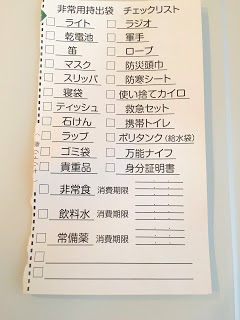 非常用持出袋 チェックリスト
ライト ラジオ
乾電池 軍手
笛 ロープ
マスク 防災頭巾
スリッパ 防寒シート
寝袋 使い捨てカイロ
ティッシュ 救急セット
石けん 携帯トイレ
ラップ ポリタンク(給水袋)
ゴミ袋 万能ナイフ
貴重品 身分証明書
非常食 消費期限
飲料水 消費期限
常備薬 消費期限